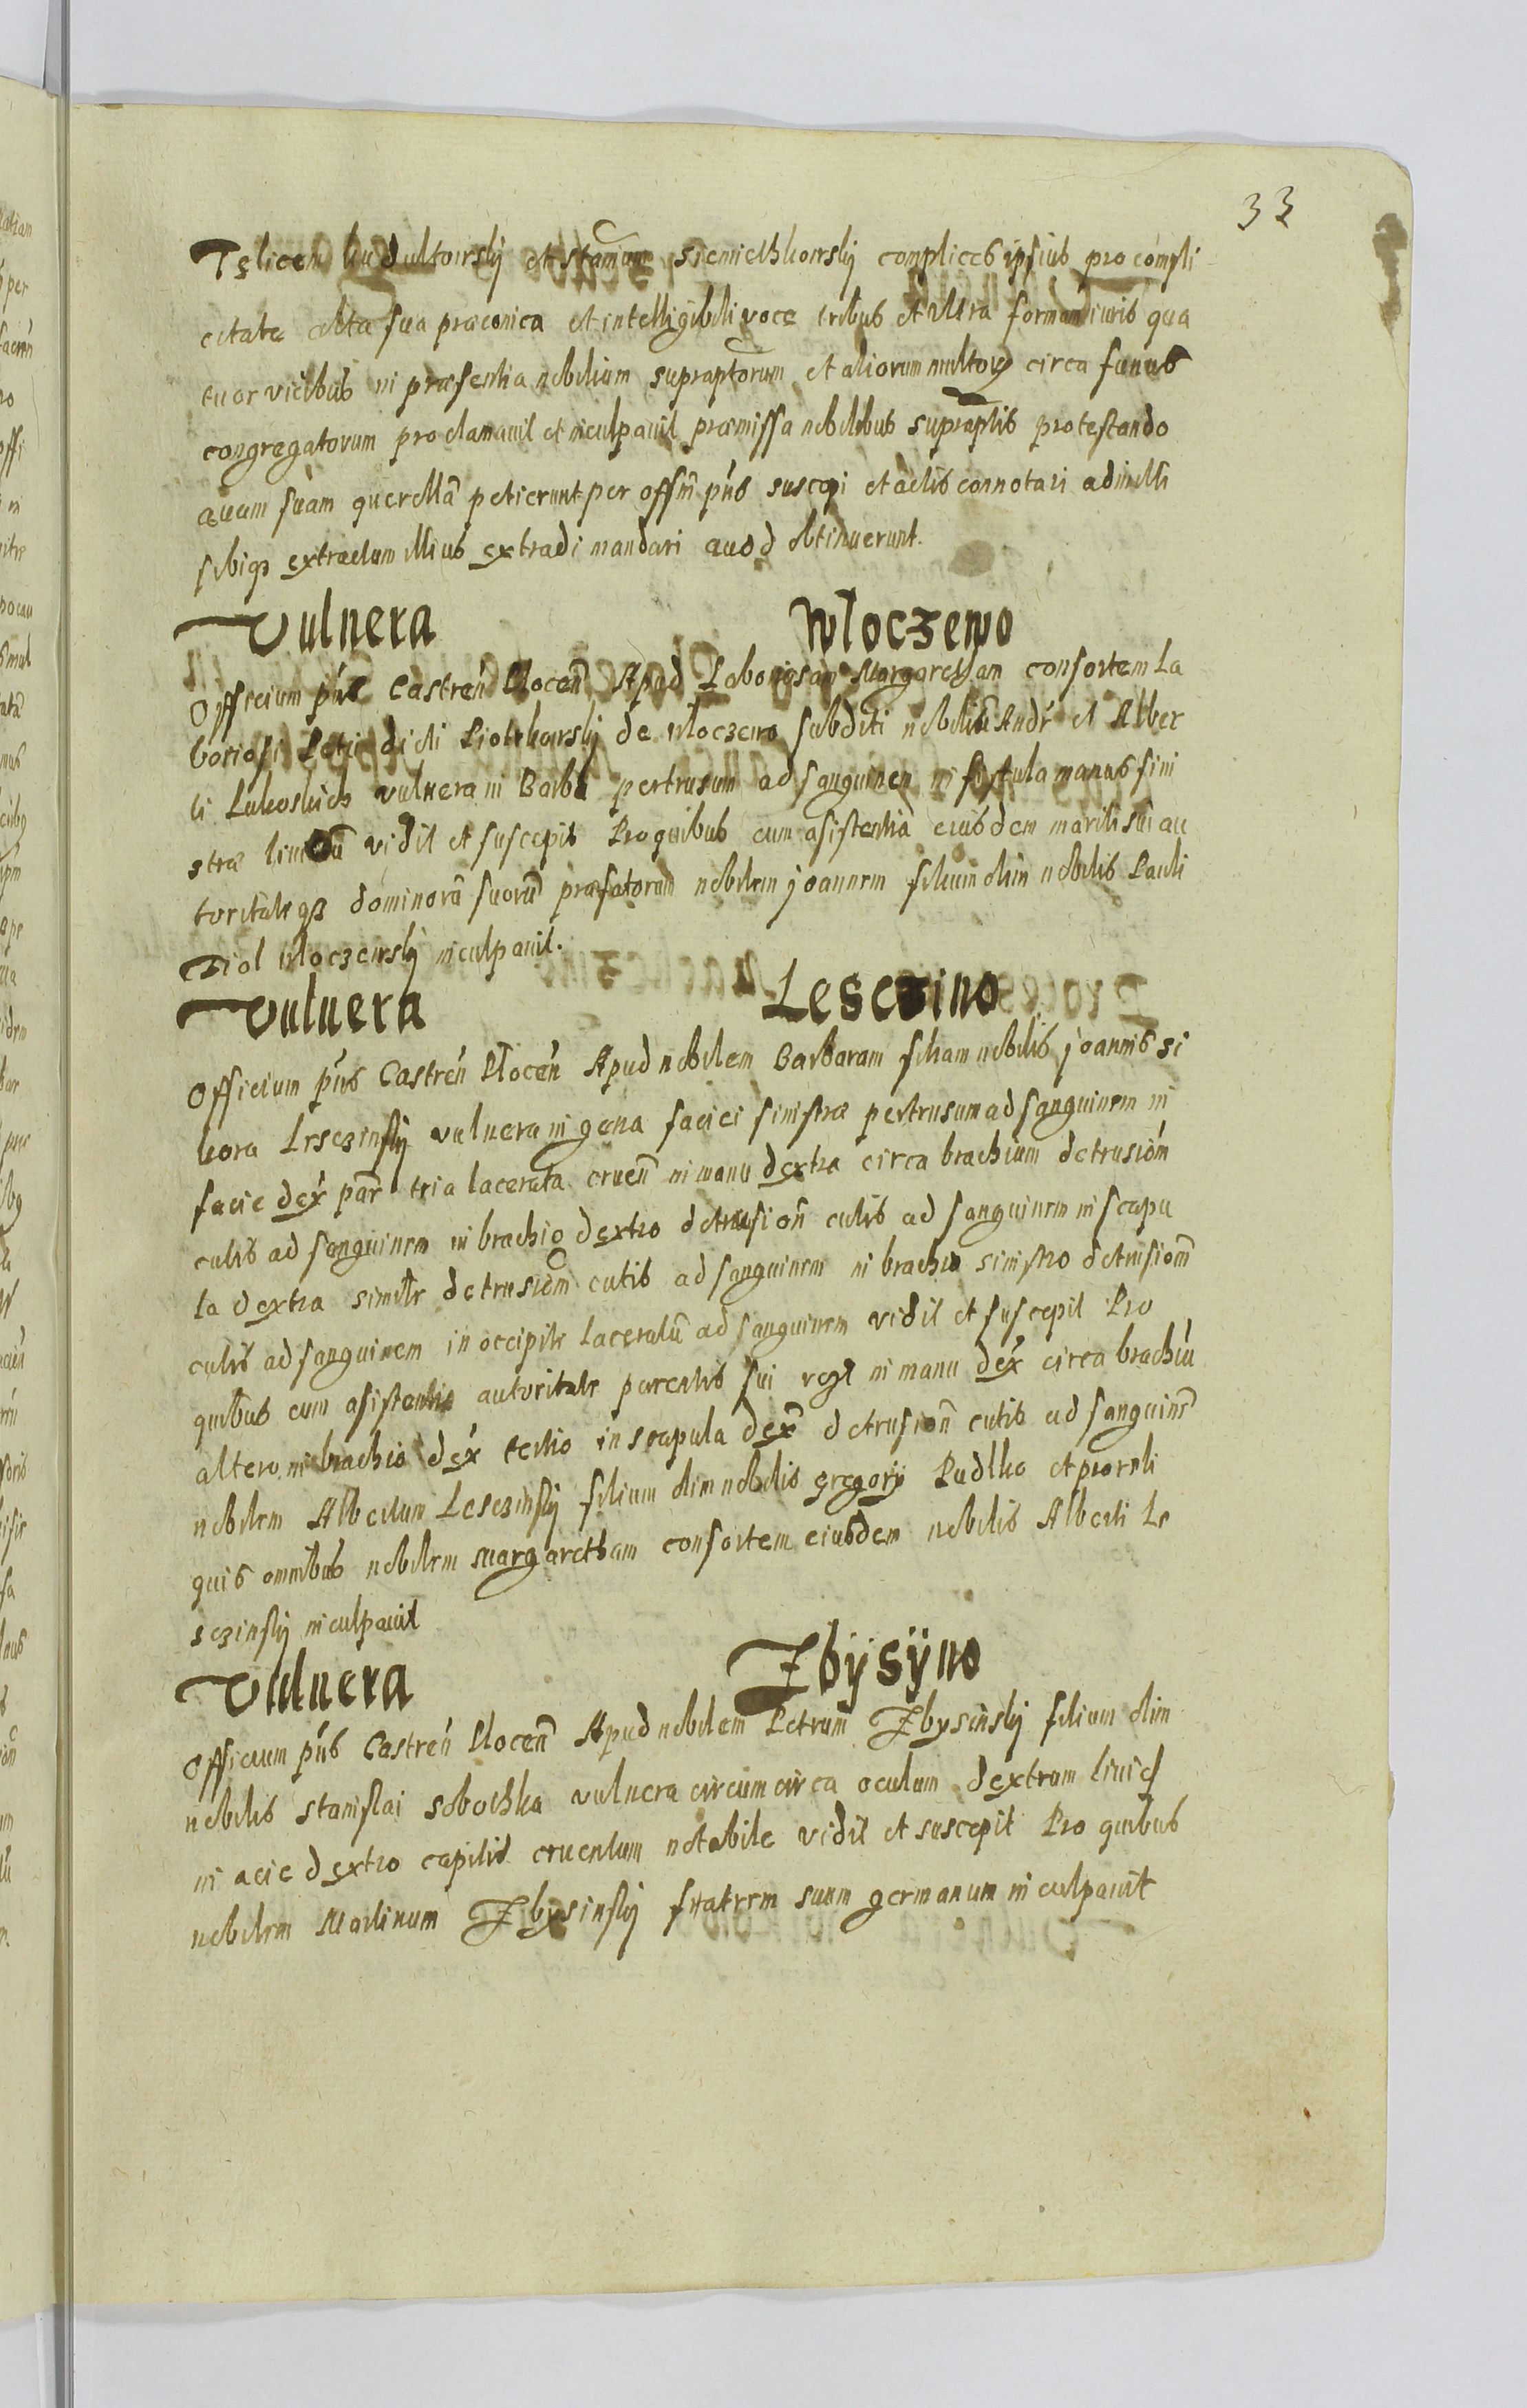 33
et siemiethkowskj complices ipsius pro compli
citate alta sua praeconica et intelligibili voce tribus et ultra formam iuris qua
tuor vicibus in praesentia nobilium supraptorum et aliorum multor circa funus
congregatorum proclamavit et inculpavit praemissa nobilibus supraptis protestando
quam suam querellã petierunt per offm pñs suscipi et actis connotari admitti
sibiq extractum illius extradi mandari quod obtinuerunt.
Vulnera Wloczewo
Officium pñs Castreñ Plocen̄ Apud Laboriosam Margaretham consortem La
boriosi Petri dicti Piotrkowskj de Wloczewo subditi nobiliũ Andr et Alber
ti vulnera in Barba pertrusum ad sanguinen in fistula manus sini
strae vidit et suscepit Pro quibus cum asistentia eiusdem mariti sui au
toritateq dominorũ suorũ praefatorum nobilem joannem filium olim nobilis Pauli
Wloczewskj inculpavit.
Vulnera Lesczino
Officium pñs Castreñ Ploceñ Apud nobilem Barbaram filiam nobilis joannis si
kora Lesczinskj vulnera in gena faciei sinistrae pertrusum ad sanguinem in
facie dex par tria lacerata cruen̄ in manu dextra circa brachium detrusiom
cutis ad sanguinem in brachio dextro detrusion̄ cutis ad sanguinem in scapu
la dextra similr detrusiom cutis ad sanguinem in brachio sinistro detrusiom̄
cutis ad sanguinem in occipite laceratũ ad sanguinem vidit et suscepit Pro
quibus cum asistentia autoritate parentis sui in manu dex circa brachiu
altero in brachio dex tertio in scapula dex detrusion̄ cutis ad sanguinē
nobilem Albertum Lesczinskj filium olim nobilis gregorij Padlko et pro reli
quis omnibus nobilem Margaretham consortem eiusdem nobilis Alberti Le
sczinskj inculpavit
Vulnera Zbysÿno
Officium pñs Castreñ Plocen̄ Apud nobilem Petrum Zbysinskj filium olim
nobilis stanislai sobothka vulnera circumcirca oculum dextrum livid
in acie dextro capitis cruentum notabile vidit et suscepit Pro quibus
nobilem Martinum Zbysinskj fratrem suum germanum inculpavit